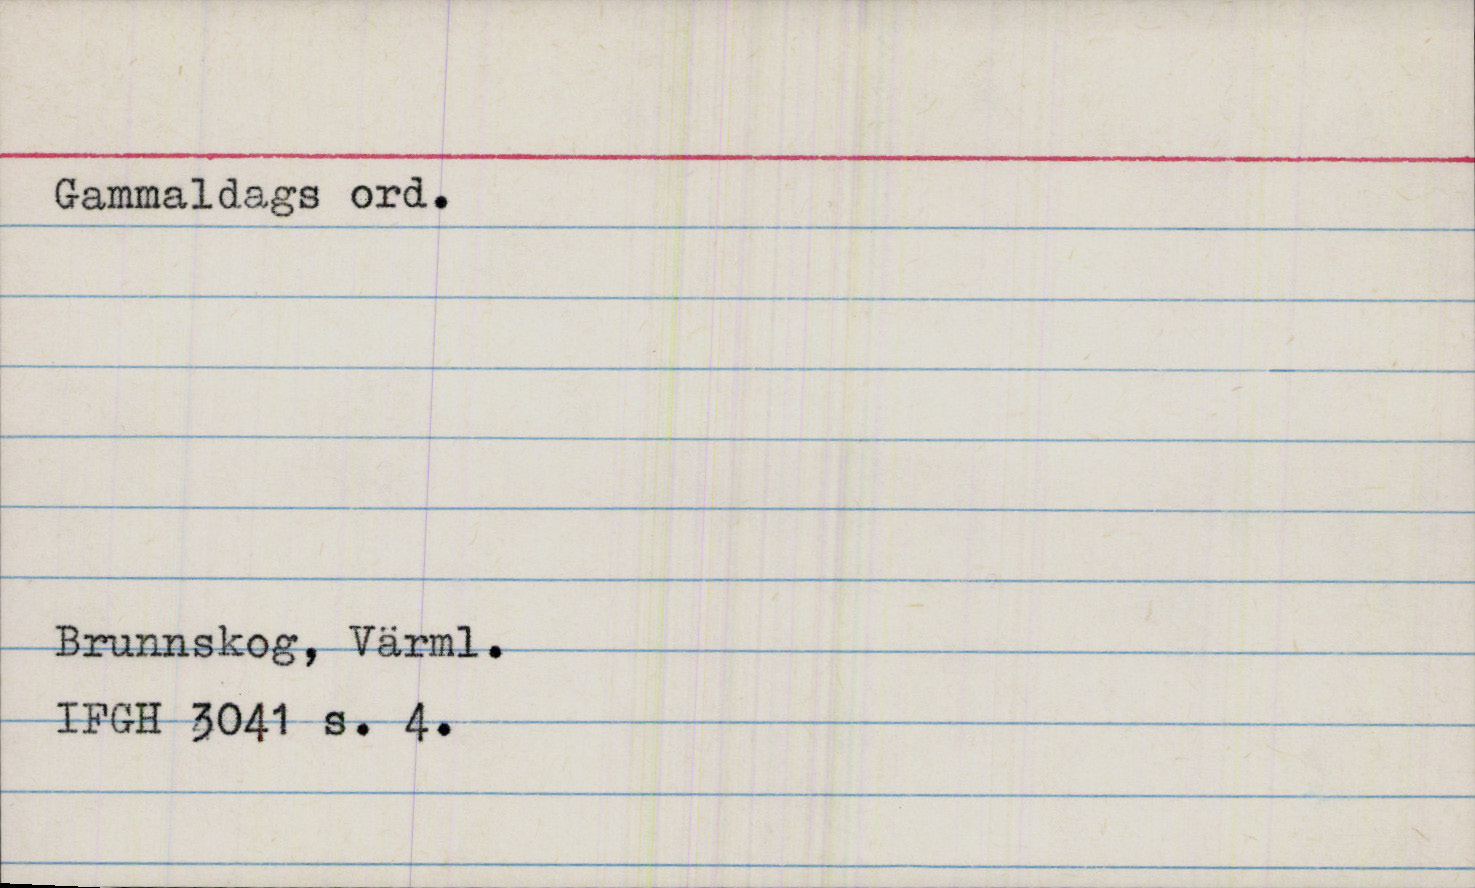 Gammaldags ord.
Brunnskog, Värml.
IFGH 3041 s. 4.